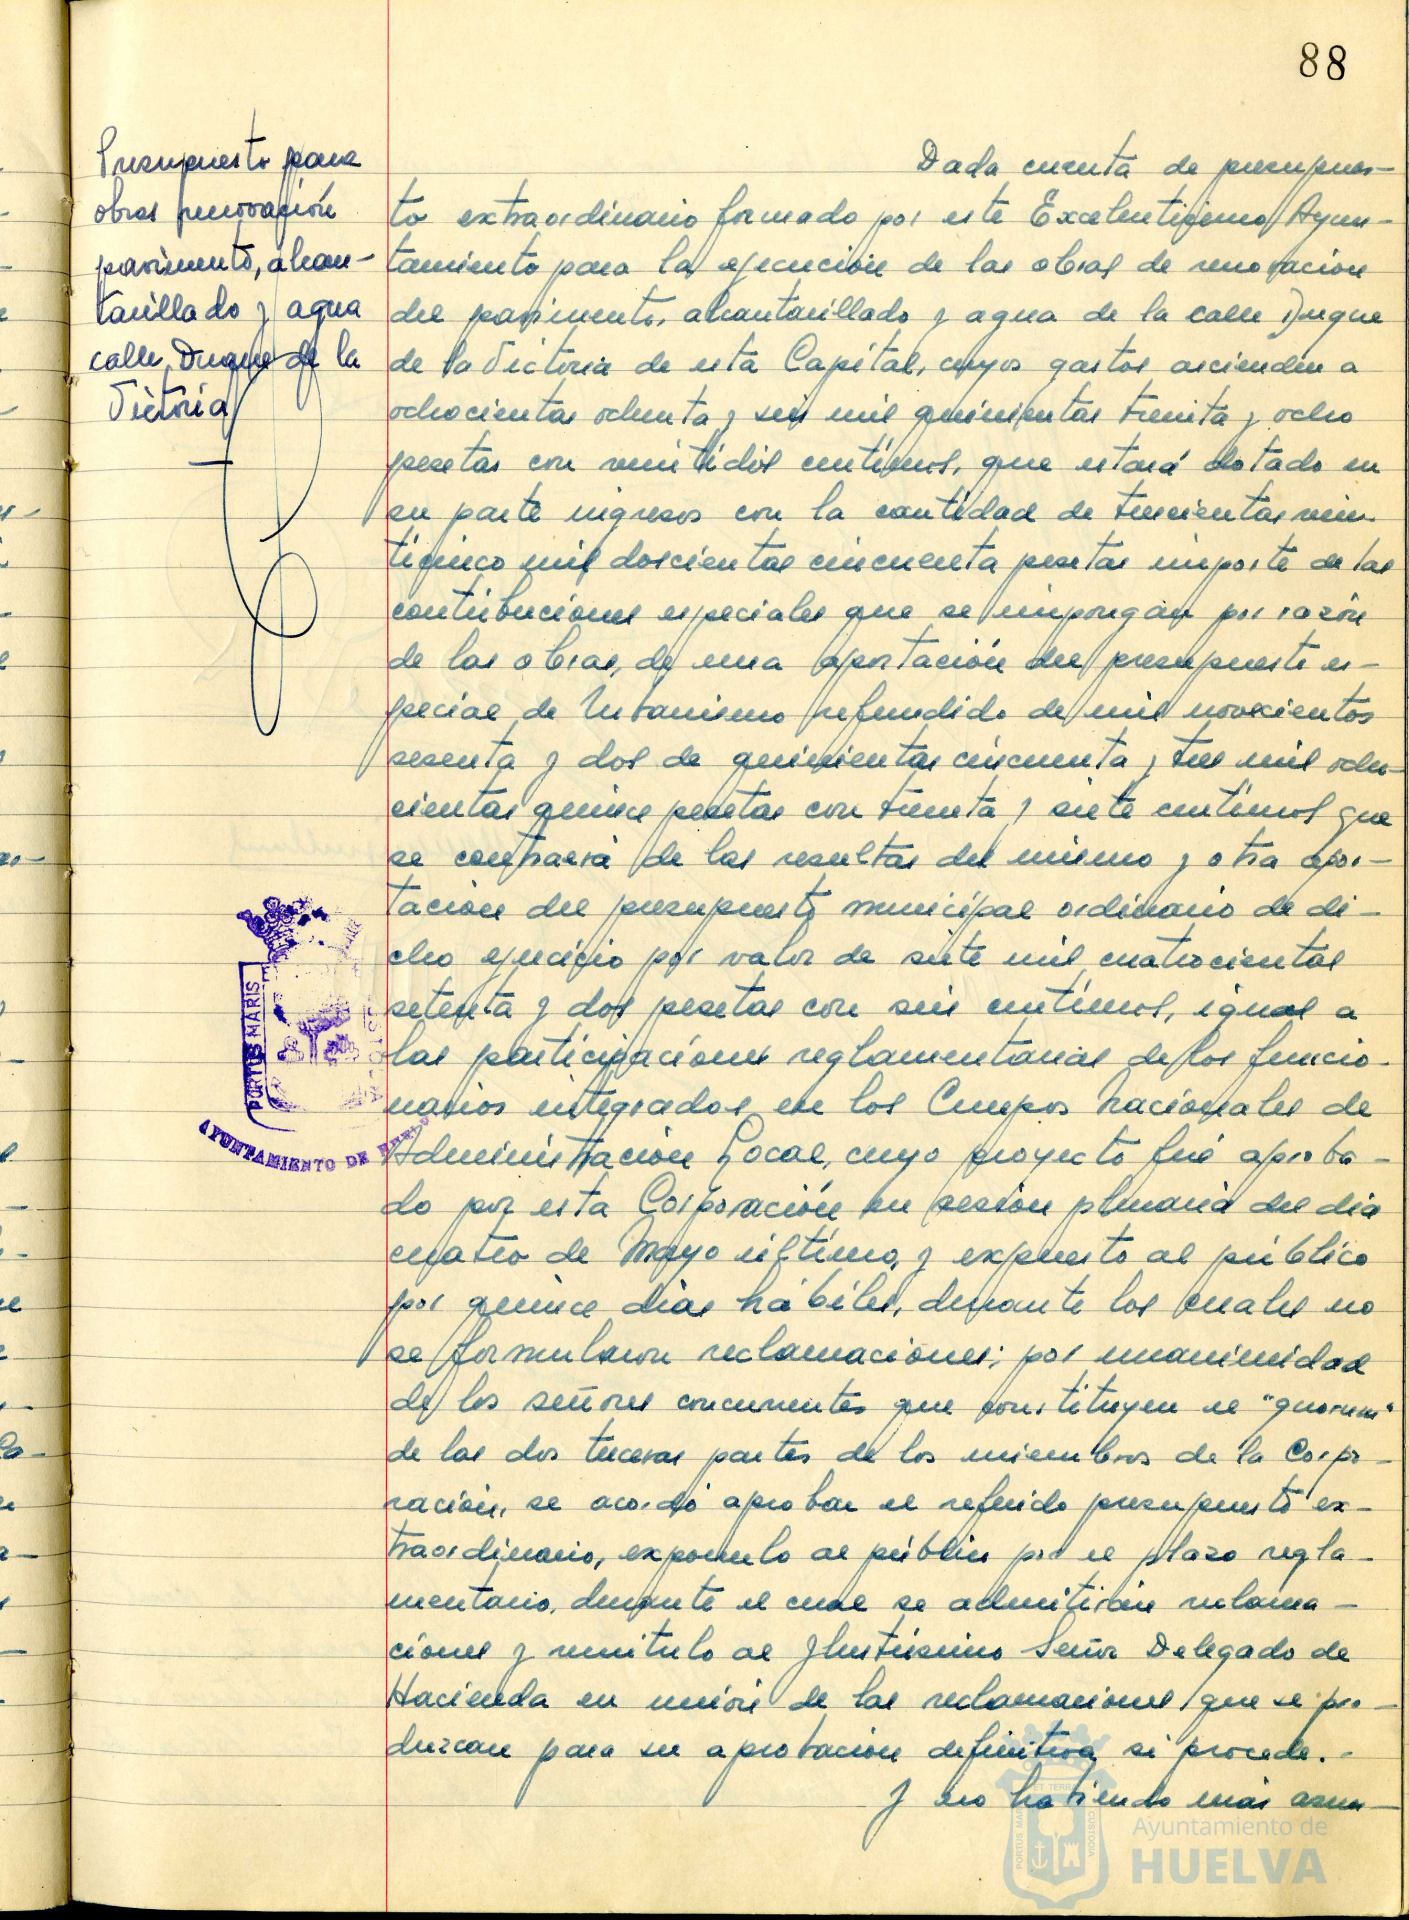 88
Presupuesto para
obras renovación
pavimento, alcan-
tarillado y agua
calle Duque de la
Victoria
Dada cuenta de presupues-
to extraordinario formado por este Excelentísimo Ayun-
tamiento para la ejecución de las obras de renovación
del pavimento, alcantarillado y agua de la calle Duque
de la Victoria de esta Capital, cuyos gastos ascienden a
ochocientas ochenta y seis mil quinientas treinta y ocho
pesetas con veintidós centímos, que estará dotado en
su parte ingresos con la cantidad de trescientas vein-
ticinco mil doscientas cincuenta pesetas importe de las
contribuciones especiales que se impongan por razón
de las obras, de una aportación del presupuesto es-
pecial de Urbanismo refundido de mil novecientos
sesenta y dos de quinientas cincuenta y tres mil ocho-
cientas quince pesetas con treinta y siete centímos que
se contraerá de las resultas del mismo y otra apor-
tación del presupuesto municipal ordinario de di-
cho ejercicio por valor de siete mil cuatrocientas
setenta y dos pesetas con seis centímos, igual a
las participaciones reglamentarias de los funcio-
narios integrados en los Cuerpos Nacionales de
Administración Local, cuyo proyecto fué aproba-
do por esta Corporación en sesión plenaria del día
cuatro de Mayo último, y expuesto al público
por quince días hábiles, durante los cuales no
se formularon reclamaciones; por unanimidad
de los señores concurrentes que constituyen el "quorum"
de las dos terceras partes de los miembros de la Corpo-
ración, se acordó aprobar el referido presupuesto ex-
traordinario, exponerlo al público por el plazo regla-
mentario, durante el cual se admitirán reclama-
ciones y remitirlo al Ilustrísimo Señor Delegado de
Hacienda en unión de las reclamaciones que se pro-
duzcan para su aprobación definitiva, si procede.-
Y no habiendo más asun-
PORTUS MARIS
AYUNTAMIENTO DE HUELVA
PORTUS MARIS ET TERRAE CUSTODIA
Ayuntamiento de
HUELVA